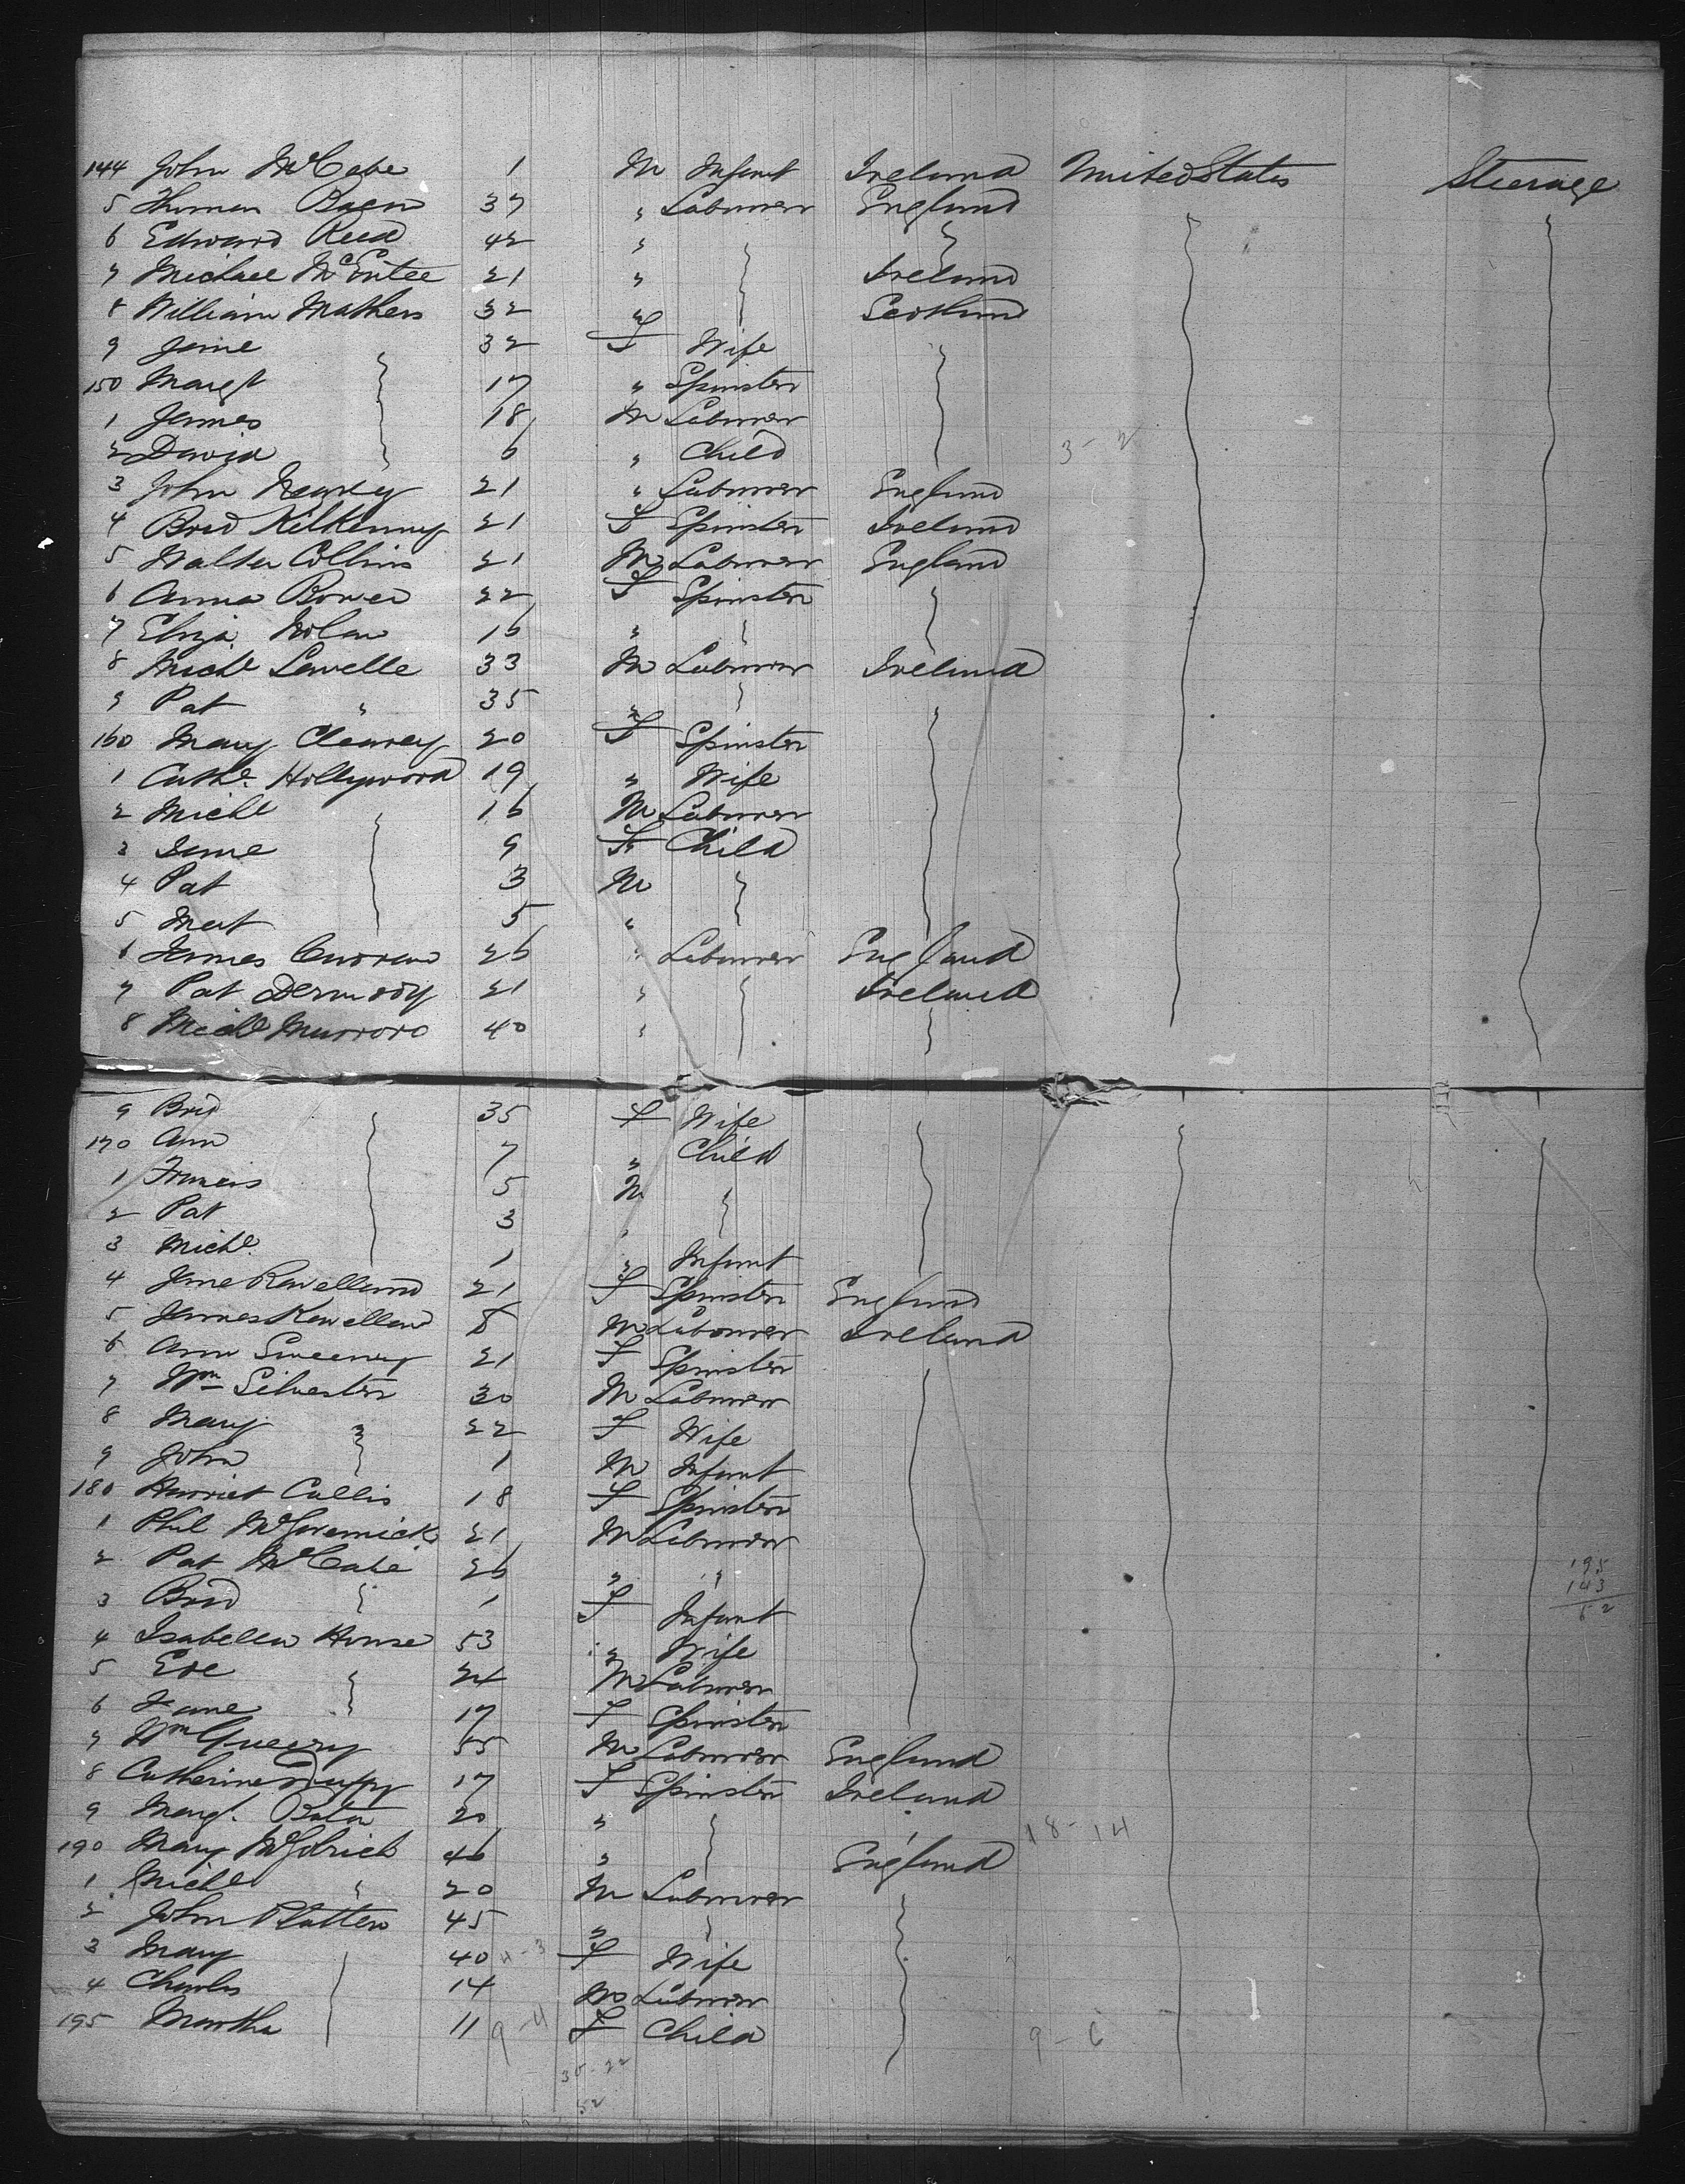 144 John McCabe 1 M Infant Ireland United States Steerage
5 Thomas 37 " Labourer England
6 Edward Reed 42 "
7 Michael McEntee 21 " Ireland
8 William Mathers 32 " Scotland
9 Jane 32 F Wife
150 Margt 17 " Spinster
1 James 18 M Labourer
2 David 6 " Child
3 John 21 " Labourer England
4 Brid Kilkenny 21 F Spinster Ireland
5 Walter Collins 21 M Labourer England
6 Anna Bower 22 F Spinster
7 Eliza Nolan 16 "
8 Michl Lavelle 33 M Labourer Ireland
9 Pat " 35 "
160 Mary Clearey 20 F Spinster
1 Cathe Hollywood 19 " Wife
2 Michl 16 M Labourer
3 Jane 9 F Child
4 Pat 3 M
5 Mat 5 "
6 James Curran 26 " Labourer England
7 Pat Dermody 21 " Ireland
8 Michl 40 "
9 Brid 35 F Wife
170 Ann 7 " Child
1 Francis 5 M
2 Pat 3 "
3 Michl 1 " Infant
4 Jane 21 F Spinster England
5 James 8 M Labourer Ireland
6 Ann Sweeney 21 F Spinster
7 Wm Silvester 30 M Labourer
8 Mary 22 F Wife
9 John 1 M Infant
180 Harriet Callis 18 F Spinster
1 Phil 21 M Labourer
2 Pat McCabe 26 " "
3 Brid 1 F Infant
4 Isabella House 53 " Wife
5 24 M Labourer
6 Jane 17 F Spinster
7 Wm 55 M Labourer England
8 Catherine Duffy 17 F Spinster Ireland
9 Margt 20 "
190 Mary 46 " England
1 Michl " 20 M Labourer
2 John Platten 45 "
3 Mary 40 F Wife
4 Charles 14 M Labourer
195 Martha 11 F Child
3-2
195
143
52
18-14
4-3
9-4
9-6
30-22
52